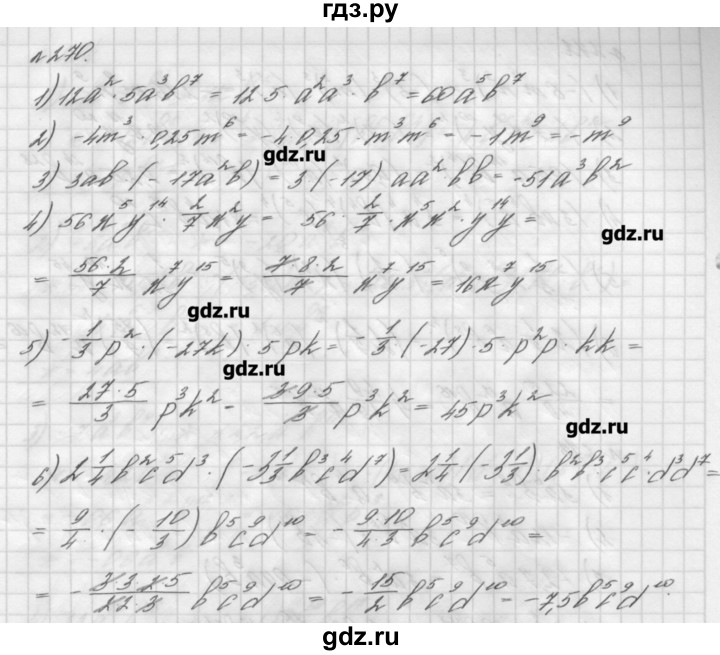 гдз.ру
№270.
1) 12a² · 5a³b⁷ = 12·5·a²a³·b⁷ = 60a⁵b⁷
2) -4m³ · 0,25m⁶ = -4·0,25·m³m⁶ = -1m⁹ = -m⁹
gdz.ru
3) 3ab·(-17a²b) = 3·(-17)·aa²bb = -51a³b²
4) 56x⁵y¹⁴ · 2/7x²y = 56·2/7·x⁵x²·y¹⁴y =
gdz.ru
= 56·2/7 x⁷y¹⁵ = 7·8·2/7 x⁷y¹⁵ = 16x⁷y¹⁵
gdz.ru
5) -1/3p²·(-27k)·5pk = -1/3·(-27)·5·p²p·kk =
gdz.ru
= 27·5/3 p³k² = 3·9·5/3 p³k² = 45p³k²
gdz.ru
6) 2 1/4b²c⁵d³·(-3 1/3b³c⁴d⁷) = 2 1/4·(-3 1/3)·b²b³·c⁵c⁴·d³d⁷ =
= 9/4·(-10/3)b⁵c⁹d¹⁰ = -9·10/4·3 b⁵c⁹d¹⁰ =
= -3·3·2·5/2·2·3 b⁵c⁹d¹⁰ = -15/2b⁵c⁹d¹⁰ = -7,5b⁵c⁹d¹⁰.
gdz.ru